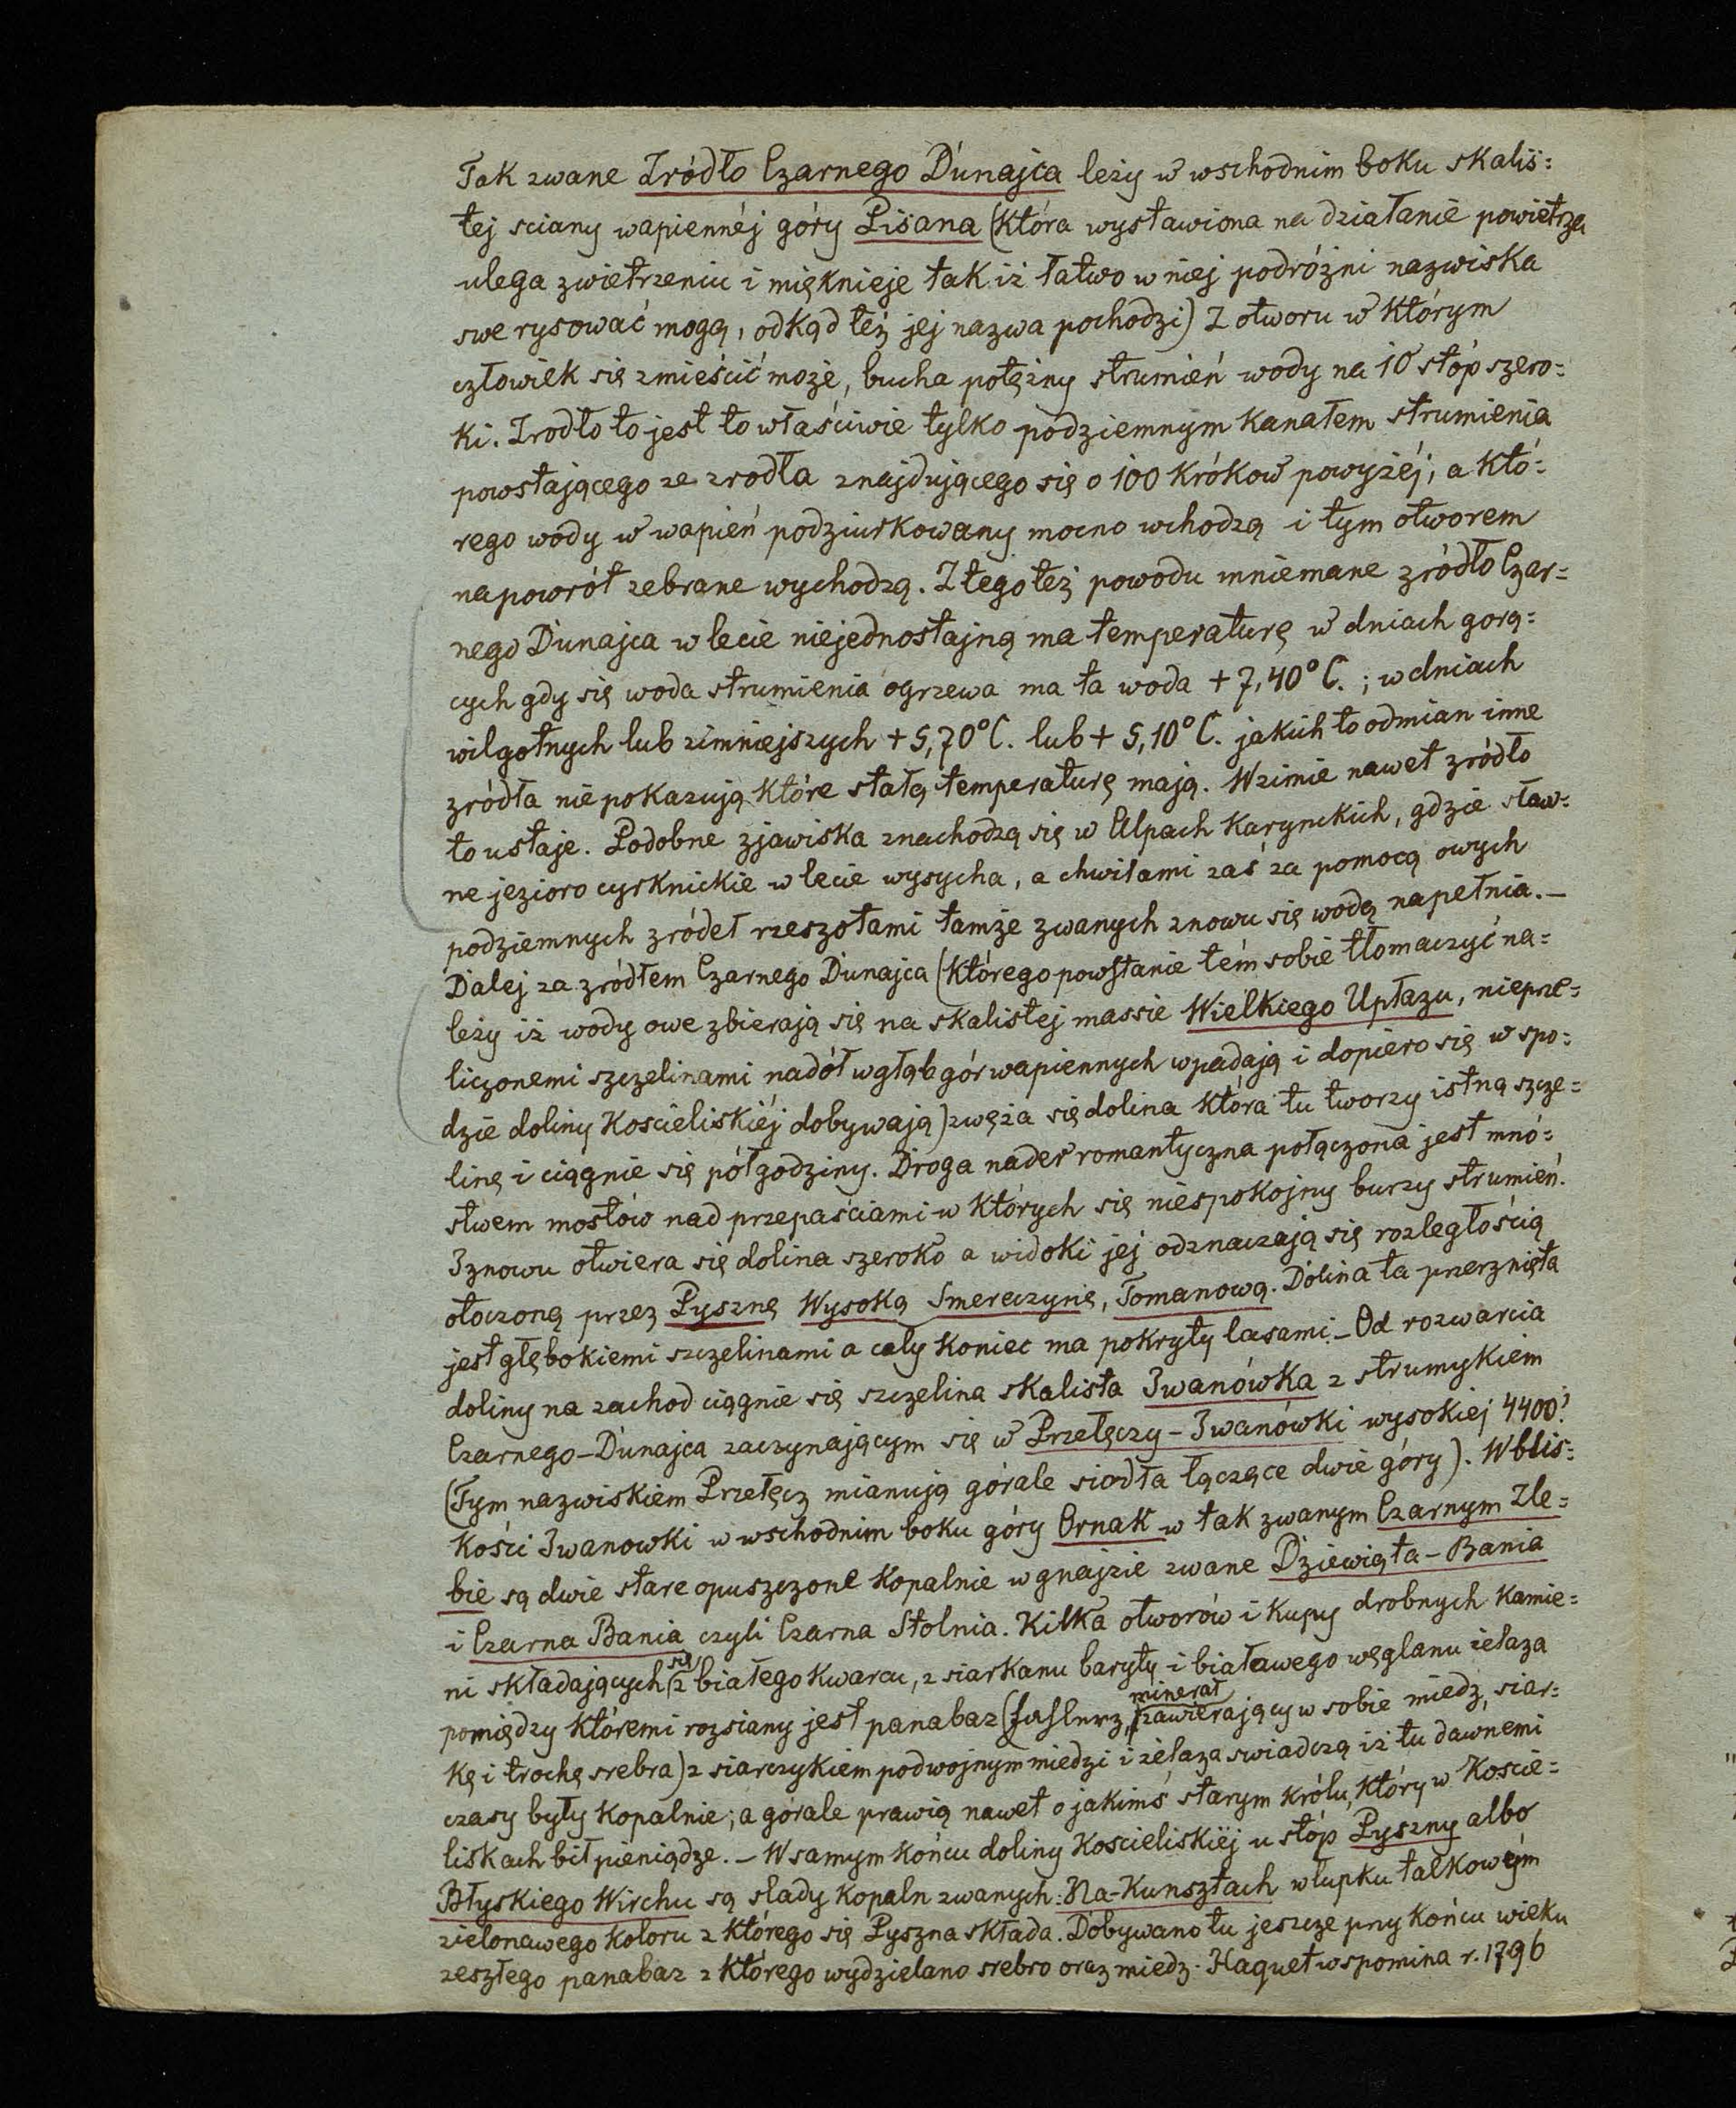 Tak zwane Zródło Czarnego Dunajca leży w wschodnim boku skaliś=
tej sciany wapiennéj góry Pisana (która wystawiona na działanie powietrza
ulega zwietrzeniu i mięknieje tak iż łatwo w niej podróżni nazwiska
swe rysować mogą, odkąd też jej nazwa pochodzi) Z otworu w którym
człowiek się zmieścić może, bucha potężny strumień wody na 10 stóp szero=
ki. Zrodło to jest to właściwie tylko podziemnym kanałem strumienia
powstającego ze zrodła znajdującego się o 100 króków powyżéj, a któ=
rego wody w wapień podziurkowany mocno wchodzą i tym otworem
napowrót zebrane wychodzą. Z tego też powodu mniemane zródło Czar=
nego Dunajca w lecie niejednostajną ma temperaturę w dniach gorą=
cych gdy się woda strumienia ogrzewa ma ta woda +7,40°C.; w dniach
wilgotnych lub zimniejszych +5,70°C. lub +5,10°C. jakich to odmian inne
zródła nie pokazują które stałą temperaturę mają. W zimie nawet zródło
to ustaje. Podobne zjawiska znachodzą się w Alpach Karynckich, gdzie sław=
ne jezioro cyrknickie w lecie wysycha, a chwilami zaś za pomocą owych
podziemnych zródeł rzeszotami tamże zwanych znowu się wodą napełnia.—
Dalej za zródłem Czarnego Dunajca (którego powstanie tém sobie tłomaczyć na=
leży iż wody owe zbierają się na skalistej massie Wielkiego Upłazu, nieprze=
liczonemi szczelinami nadół w głąb gór wapiennych wpadają i dopiero się w spo=
dzie doliny Koscieliskiéj dobywają) zwęża się dolina która tu tworzy istną szcze=
linę i ciągnie się pół godziny. Droga nader romantyczna połączona jest mnó=
stwem mostów nad przepaściami w których się niespokojny burzy strumień.
I znowu otwiera się dolina szeroko a widoki jej odznaczają się rozległością
otoczoną przez Pyszną Wysoką Smereczynię, Tomanową. Dolina ta przerznięta
jest głębokiemi szczelinami a cały koniec ma pokryty lasami.— Od rozwarcia
doliny na zachod ciągnie się szczelina skalista Iwanówka z strumykiem
Czarnego-Dunajca zaczynającym się w Przełęczy-Iwanówki wysokiej 4400'.
(Tym nazwiskiem Przełęcz mianują górale siodła łączące dwie góry). W blis=
kości Iwanowki w wschodnim boku góry Ornak w tak zwanym Czarnym Zle=
bie są dwie stare opuszczone kopalnie w gnejzie zwane Dziewiąta-Bania
i Czarna Bania czyli Czarna Stolnia. Kilka otworów i kupy drobnych kamie=
ni składających się z białego kwarcu, z siarkanu baryty i białawego węglanu żelaza
pomiędzy któremi rozsiany jest panabaz (Fahlerz, minerał zawierający w sobie miedź, siar=
kę i trochę srebra) z siarczykiem podwojnym miedzi i żelaza swiadczą iż tu dawnemi
czasy były kopalnie; a górale prawią nawet o jakimś starym królu, który w Koscie=
liskach bił pieniądze.— W samym końcu doliny Koscieliskiéj u stóp Pyszny albo
Błyskiego Wirchu są slady kopaln zwanych: Na-Kunsztach w łupku talkowym
zielonawego koloru z którego się Pyszna składa. Dobywano tu jeszcze przy końcu wieku
zeszłego panabaz z którego wydzielano srebro oraz miedz. Haquet wspomina r. 1796